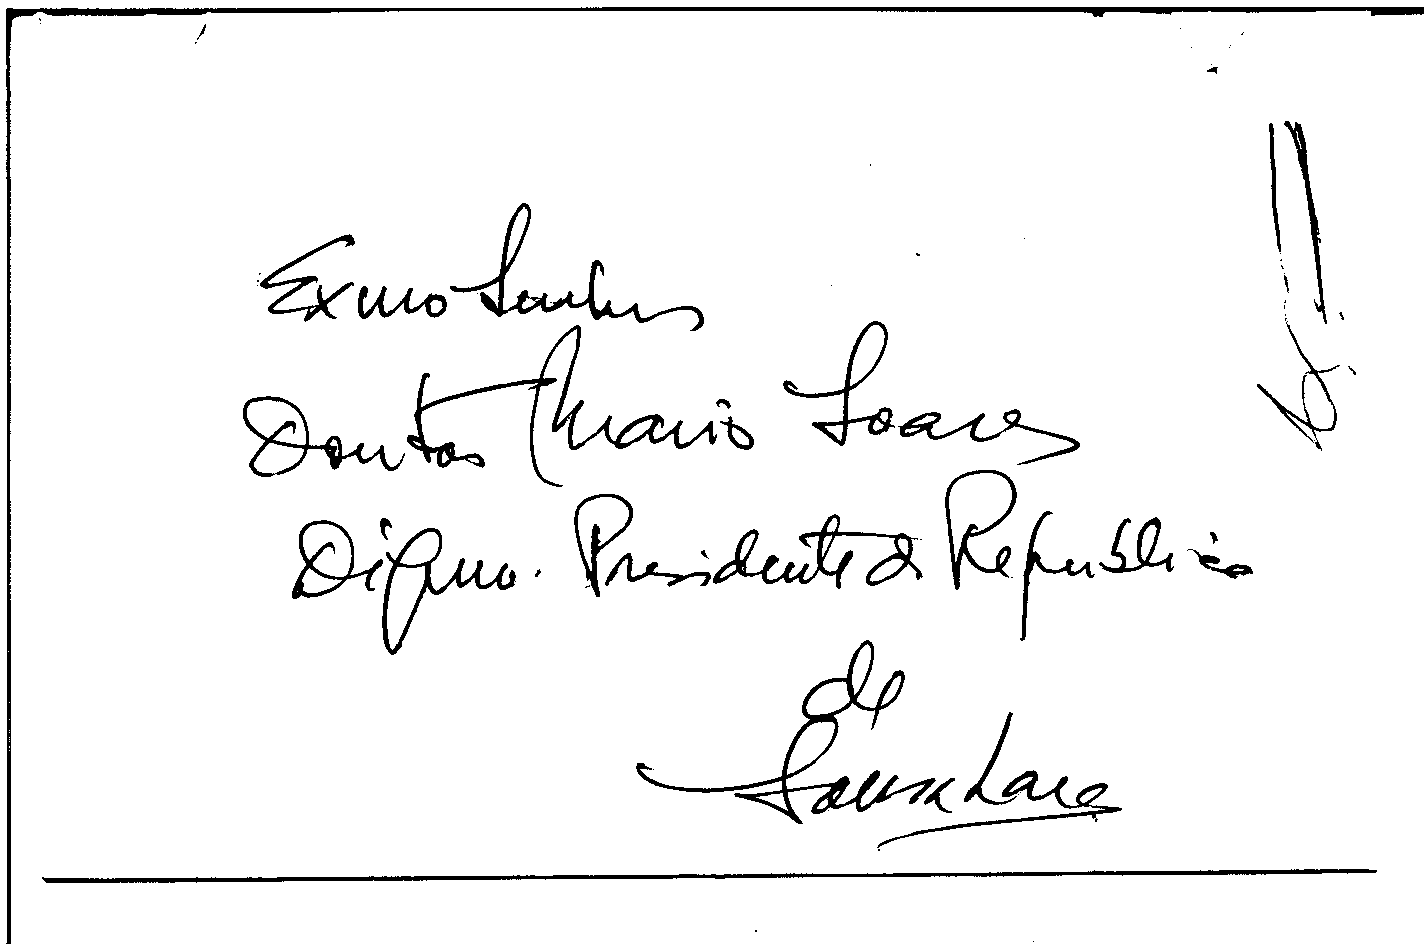 Exmo Senhor
Doutor Mario Soares
Digmo. Presidente da República
de
Sousa Lara